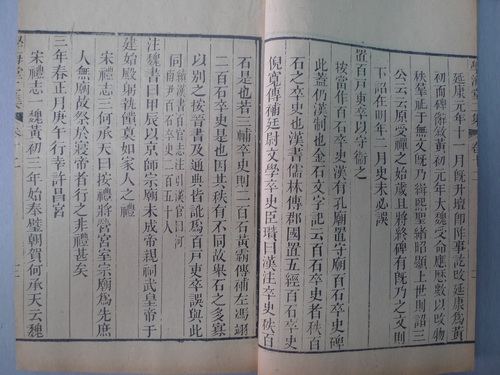 延康元年十一月既升壇卽阼事訖改延康爲黃
初而碑敘黃初元年大魏受命應歷數以改物
秩羣祀于無文既乃緝熙聖緒昭顯上世則詔三
公云云原受禪之始歲且將終碑有既乃之文則
下詔在明年二月史未必誤
置百戶吏卒以守衞之
按當作百石卒史漢有孔廟置守廟百石卒史碑
此蓋仍漢制也金石文字記云百石卒史者秩百
石之卒史也漢書儒林傳郡國置五經百石卒史
倪寬傳補廷尉文學卒史臣瓚曰漢注卒史秩百
石是也若三輔卒史則二百石黃霸傳補左馮翊
二百石卒史是也因其秩有不同故舉石之多寡
以別之按晉書及通典皆訛爲百戶吏卒誤與此
同
注魏書曰甲辰以京師宗廟未成帝親祠武皇帝于
建始殿躬執饋奠如家人之禮
宋禮志三何承天曰按禮將營宮室宗廟爲先庶
人無廟故祭於寢帝者行之非禮甚矣
三年春正月庚午行幸許昌宮
宋禮志一魏黃初三年始奉璧朝賀何承天云魏